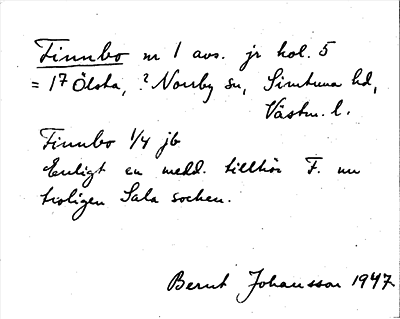 Finnbo nr 1 avs. jr kol. 5
= 17 Ölsta, ? Norrby sn, Simtuna hd,
Västm. l.
Finnbo 1/4 jb
Enligt en medd. tillhör F. nu
troligen Sala socken.
Bernt Johansson 1947